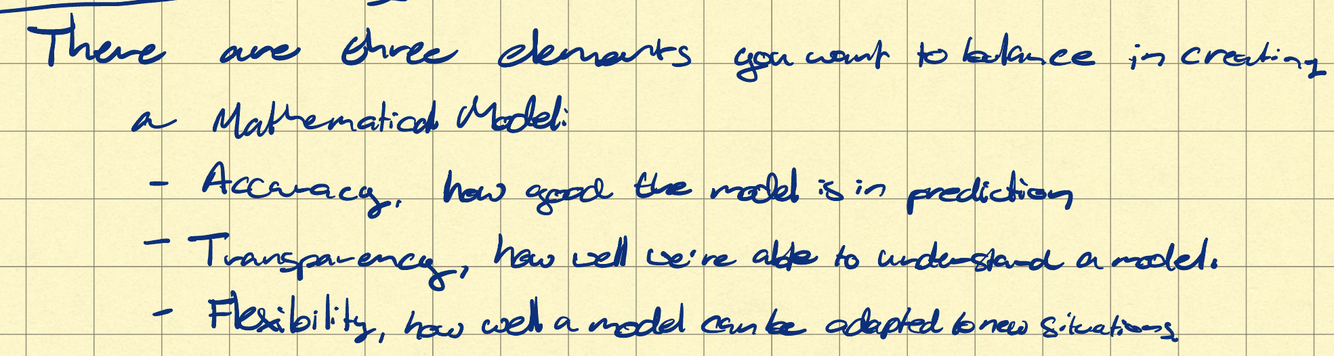 There are three elements you want to balance in creating
a Mathematical Model:
- Accuracy, how good the model is in prediction
- Transparency, how well we're able to understand a model.
- Flexibility, how well a model can be adapted to new situations